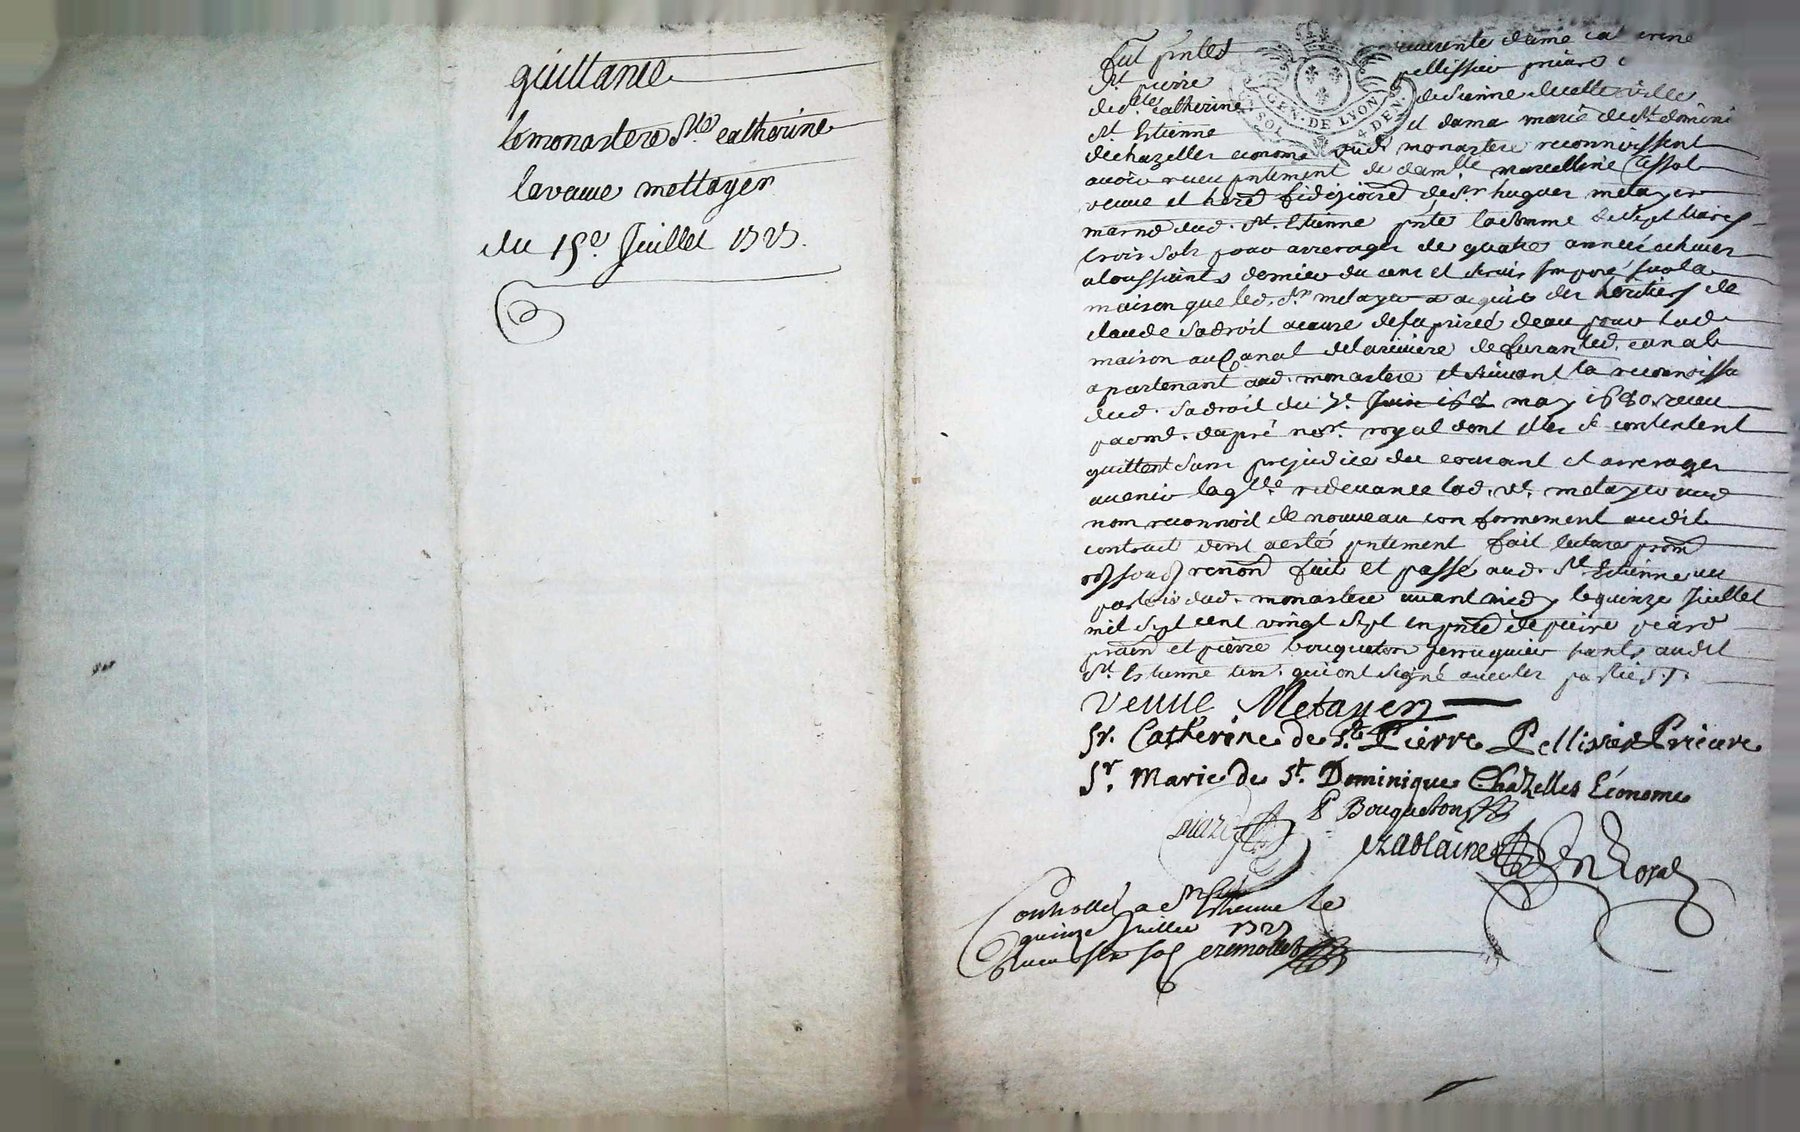 quittance
le monastere Ste catherine
la vauve mettayer
du 15e Juillet 1727.
fut pntes reverente dame cat erine
St pierre pellissier prieure
de Ste catherine de Sienne de cette ville
St Estienne et dame marie de St domini
de chazelles econome dud. monastere reconnoissent
avoir receu pntement de damlle marcelline Tessot
veuve et hered fideijoired de Sr hugues metayer
marnd dud. St. Estienne pnte la somme de sept livres
trois sols pour arrerages de quatre années echues
a toussaints dernier du cens et servis Imposé sur la
maison que led. Sr metayer a acquis des heritiers de
claude sadroit a cause de sa prise d'eau pour lad.
maison au Canal de la riviere de furan led. canal
apartenant aud. monastere et suivant la reconnoissa
dud. sadroit du 7e Juin 168 may 1680 receu
par md. dapré nore. royal dont elles se contentent
quittent sans prejudice du courant et arrerages
avenir laqlle redevance lad. ve. metayer aud
nom reconnoit de nouveau conformement audit
contract dont a esté pntement fait lecture prom
obj soub renond fait et passé aud. St Estienne au
parloir dud. monastere avant midy le quinze Juillet
mil sept cent vingt sept en pnce de pierre picard
pratn et pierre bouqueton perruquier hants audit
St. Estienne tem. qui ont signé avec les parties.
veuve Metayer
Sr. Catherine de St. Pierre Pellissier Prieure
Sr. Marie de St. Dominique Chazelles Econome
P Bouqueton
ezablaine n Royal
Controllé a St Estienne le
quinze Juillet 1727
Receu six sols eremollet
GEN. DE LYON
SOL 4 DEN